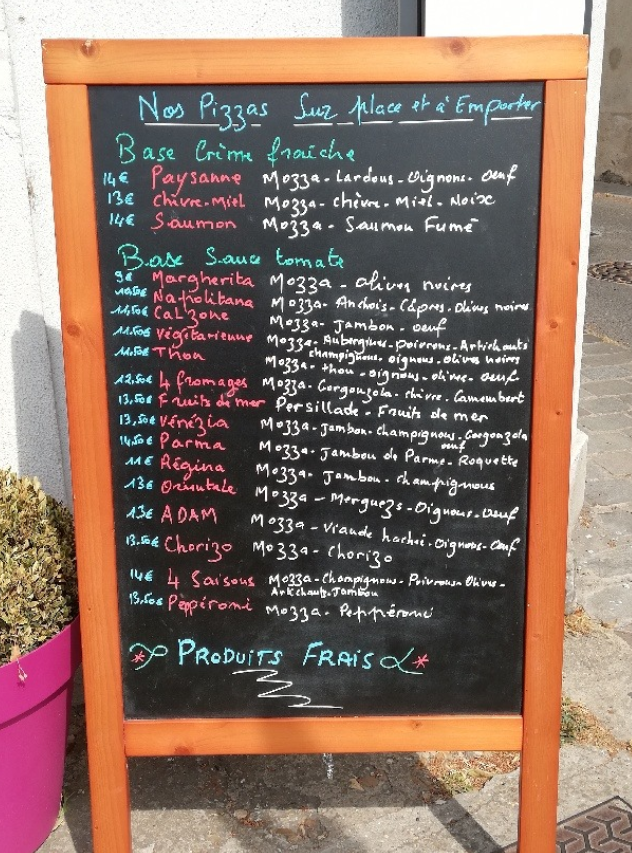 Nos Pizzas Sur place et à Emporter
Base Crème fraîche
14€ Paysanne Mozza - Lardons - Oignons - Oeuf
13€ Chèvre-Miel Mozza - Chèvre - Miel - Noix
14€ Saumon Mozza - Saumon Fumé
Base Sauce tomate
9€ Margherita Mozza - Olives noires
10,50€ Napolitana Mozza - Anchois - Câpres - Olives noires
11,50€ Cal'zone Mozza - Jambon - oeuf
11.50€ Végétarienne Mozza - Aubergines - poivrons - Artichauts
champignons - oignons - olives noires
11.50€ Thon Mozza - thon - oignons - olives - oeuf
12,50€ 4 fromages Mozza - Gorgonzola - chèvre - Camembert
13,50€ Fruits de mer Persillade - Fruits de mer
13,50€ Vénézia Mozza - Jambon - Champignons - Gorgonzola
oeuf
14,50€ Parma Mozza - Jambon de Parme - Roquette
11€ Régina Mozza - Jambon - champignons
13€ Orientale Mozza - Merguezs - Oignons - Oeuf
13€ ADAM Mozza - Viande hachée - Oignons - Oeuf
13.50€ Chorizo Mozza - Chorizo
14€ 4 Saisons Mozza - Champignons - Poivrons - Olives -
Artichauts - Jambon
13,50€ Peppéroni Mozza - Peppéroni
PRODUITS FRAIS